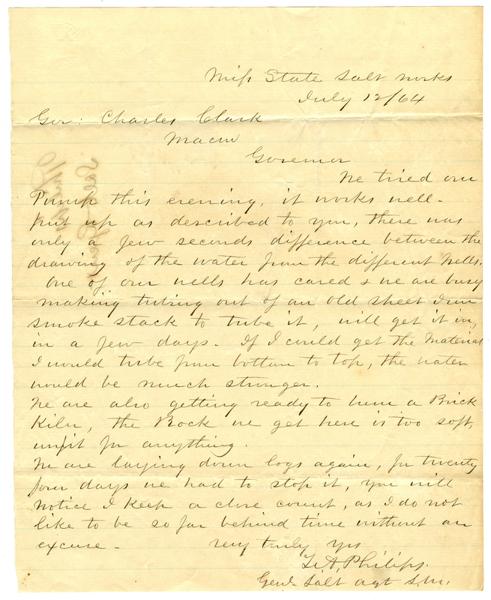 Miss State Salt Works
July 12/64
Gov: Charles Clark
Macon
Governor
We tried our
Pump this evening, it works well-
put up as described to you, there was
only a few seconds difference between the
drawing of the water from the different Wells.
one of our wells has caved & we are busy
making tubing out of an old sheet Iron
smoke stack to tube it, will get it in,
in a few days. If I could get the Material
I would tube from bottom to top, the water
would be much stronger.
We are also getting ready to burn a Brick
Kiln, the Rock we get here is too soft,
unfit for anything.
We are laying down logs again, for twenty
four days we had to stop it, you will
notice I keep a close count, as I do not
like to be so far behind time without an
excuse - very truly yrs
Philips.
Genl Salt agt S.M.